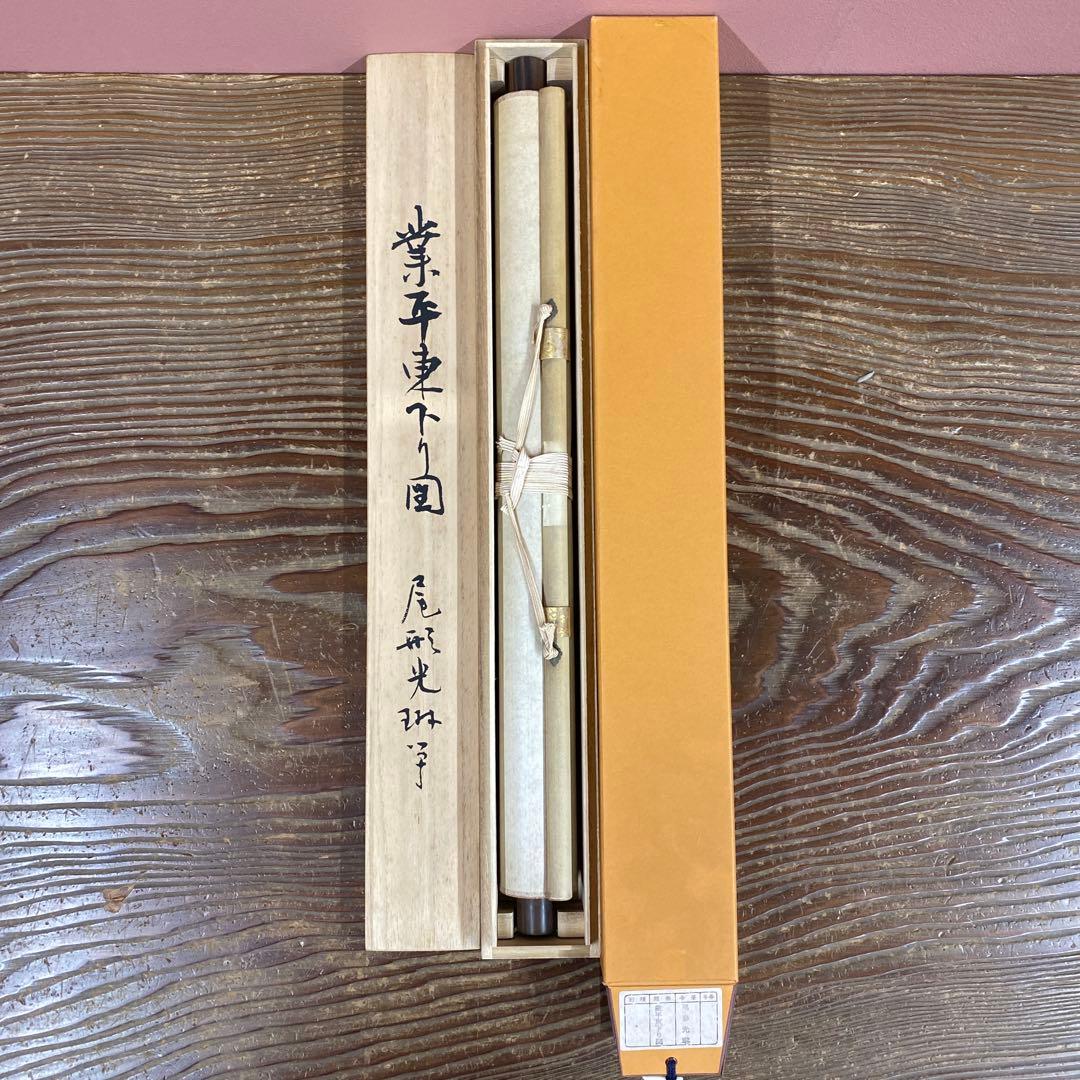 業平東下り図
尾形光琳筆